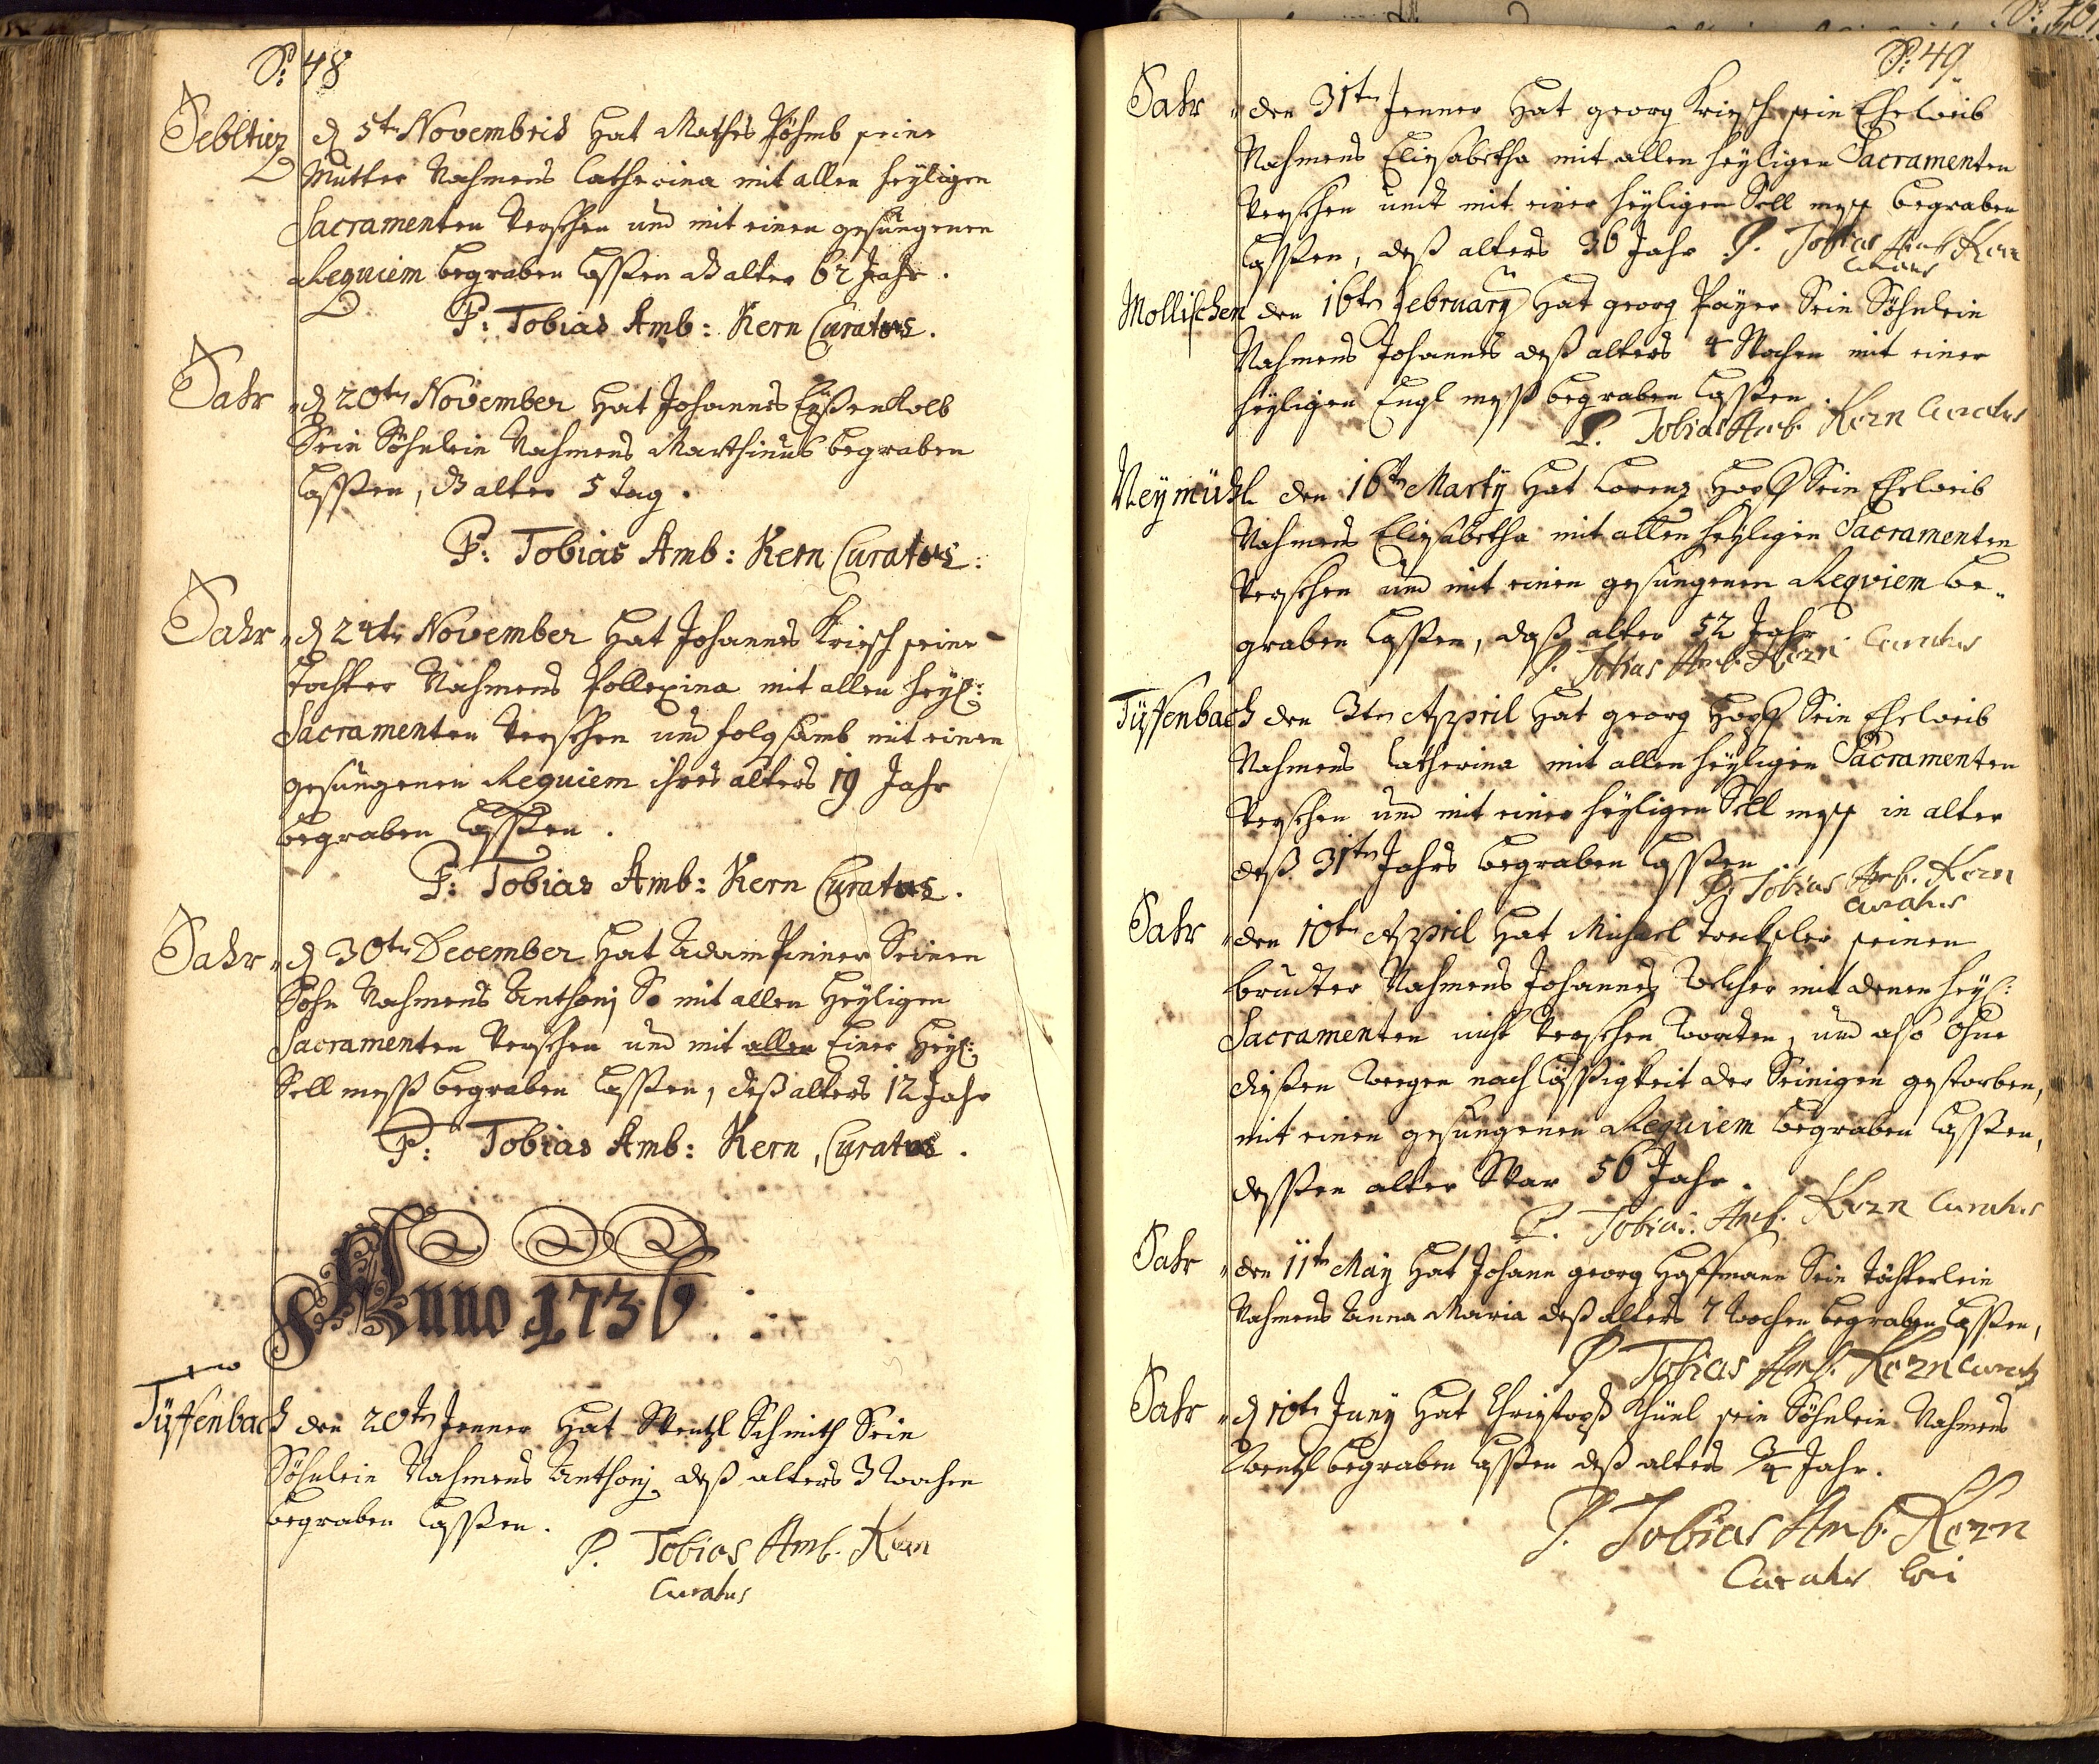 S: 48
Seblticz d 5tn Novembris hat Mathes Böhmb seine
Mutter Nahmens Catherina mit allen heyligen
Sacramenten versehen und mit einen gesungenen
Requiem begraben lassen alter 62 Jahr.
P: Tobias Amb: Kern Curatus.
Sahr " d 20tn November hat Johannes Eyßenkolb
Sein Söhnlein Nahmens Marthinus begraben
lassen, alter 5 tag.
P: Tobias Amb: Kern Curatus:
Sahr " d 24tn November hat Johannes Kriesch seine
tochter Nahmens Pollexina mit allen heyl:
Sacramenten versehen und folgsamb mit einen
gesungenen Requiem ihres alters 19 Jahr
begraben lassen.
P: Tobias Amb: Kern Curatus.
Sahr " d 30tn December hat Adam Pinner Seinen
Sohn Nahmens Anthonj So mit allen Heyligen
Sacramenten versehen und mit allen Einer Heyl:
Sell mess begraben lassen, deß alters 12 Jahr
P: Tobias Amb: Kern, Curatus.
Anno 1736.
Tüffenbach den 20tn Jenner hat Wentzl Schmith Sein
Söhnlein Nahmens Anthonj deß alters 3 wochen
begraben lassen.
P. Tobias Amb. Kern
Curatus
S: 49.
Sahr " den 31tn Jenner hat georg Kriesch sein Eheweib
Nahmens Eliesabetha mit allen heyligen Sacramenten
versehen undt mit einer heyligen Sell mess begraben
lassen, deß alters 36 Jahr P. Tobias Amb Kern
Curatus
Mollischen den 16tn february hat georg Payer Sein Söhnlein
Nahmens Johannes deß alters 4 Wochen mit einer
heyligen Engl mess begraben lassen.
P. Tobias Amb. Kern Curatus
Neymühl den 16tn Marty hat Lorenz Sein Eheweib
Nahmens Eliesabetha mit allen heyligen Sacramenten
versehen und mit einen gesungenen Reqviem be„
graben lassen, daß alter 52 Jahr
P. Tobias Amb. Kern Curatus
Tüffenbach den 3tn April hat georg Sein Eheweib
Nahmens Catherina mit allen heyligen Sacramenten
versehen und mit einer heyligen Sell mess in alter
deß 31tn Jahrs begraben lassen
P. Tobias Amb. Kern
Curatus
Sahr " den 10tn April hat Michael seinen
brudter Nahmens Johannes welcher mit denen heyl:
Sacramenten nicht versehen worden, und also ohne
diesen wegen nachlässigkeit der Seinigen gestorben,
mit einen gesungenen Requiem begraben lassen,
dessen alter War 56 Jahr.
P. Tobias Amb. Kern Curatus
Sahr " den 11tn May hat Johann georg Hoffmann Sein töchterlein
Nahmens Anna Maria deß alters 7 wochen begraben lassen,
P Tobias Amb. Kern Curatus
Sahr " d 10tn Juny hat Christoph Khünl sein Söhnlein Nahmens
Wentzl begraben lassen deß alters 3/4 Jahr.
P. Tobias Amb. Kern
Curatus